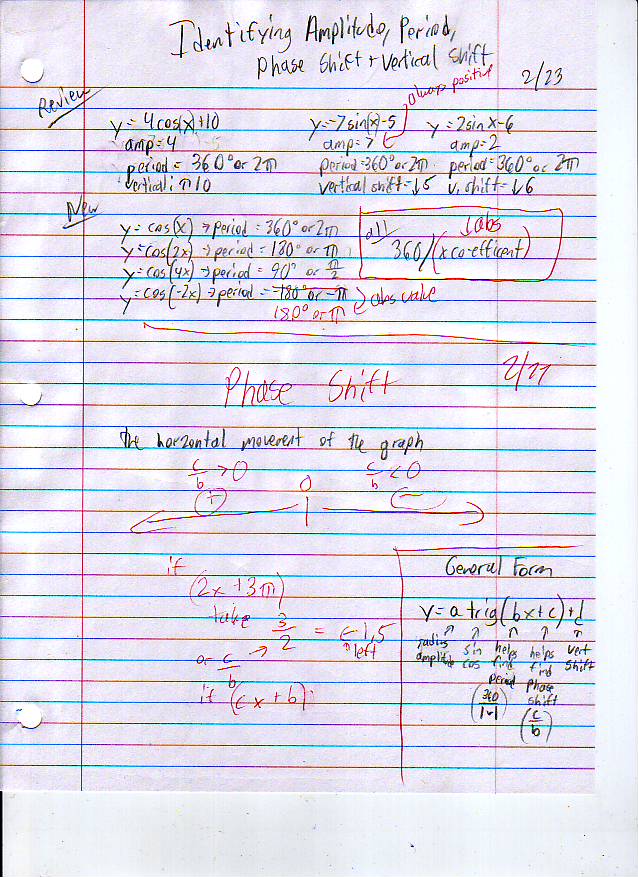 Identifying Amplitude, Period,
Phase Shift + Vertical Shift
2/23
always positive
Review
y = 4cos(x)+10
amp = 4
period = 360° or 2π
vertical: ↑10
y=-7sin(x)-5
amp = 7
period=360° or 2π
vertical shift=↓5
y = 2sin x-6
amp=2
period=360° or 2π
v. shift=↓6
New
y = cos(x) → period = 360° or 2π
y = cos(2x) → period = 180° or π
y = cos(4x) → period = 90° or π/2
y = cos(-2x) → period = -180° or -π
180° or π
abs value
all
↓abs
360/(x co-efficent)
2/27
Phase Shift
the horzontal movement of the graph
c/b > 0
c/b < 0
0
+
-
if
(2x + 3π)
take 3/2 = ←1.5
left
or c/b
if (cx + b)
General Form
y = a trig(bx+c)+d
radius amplitude
sin cos
helps find period
(360/|b|)
helps find phase shift
(c/b)
vert shift